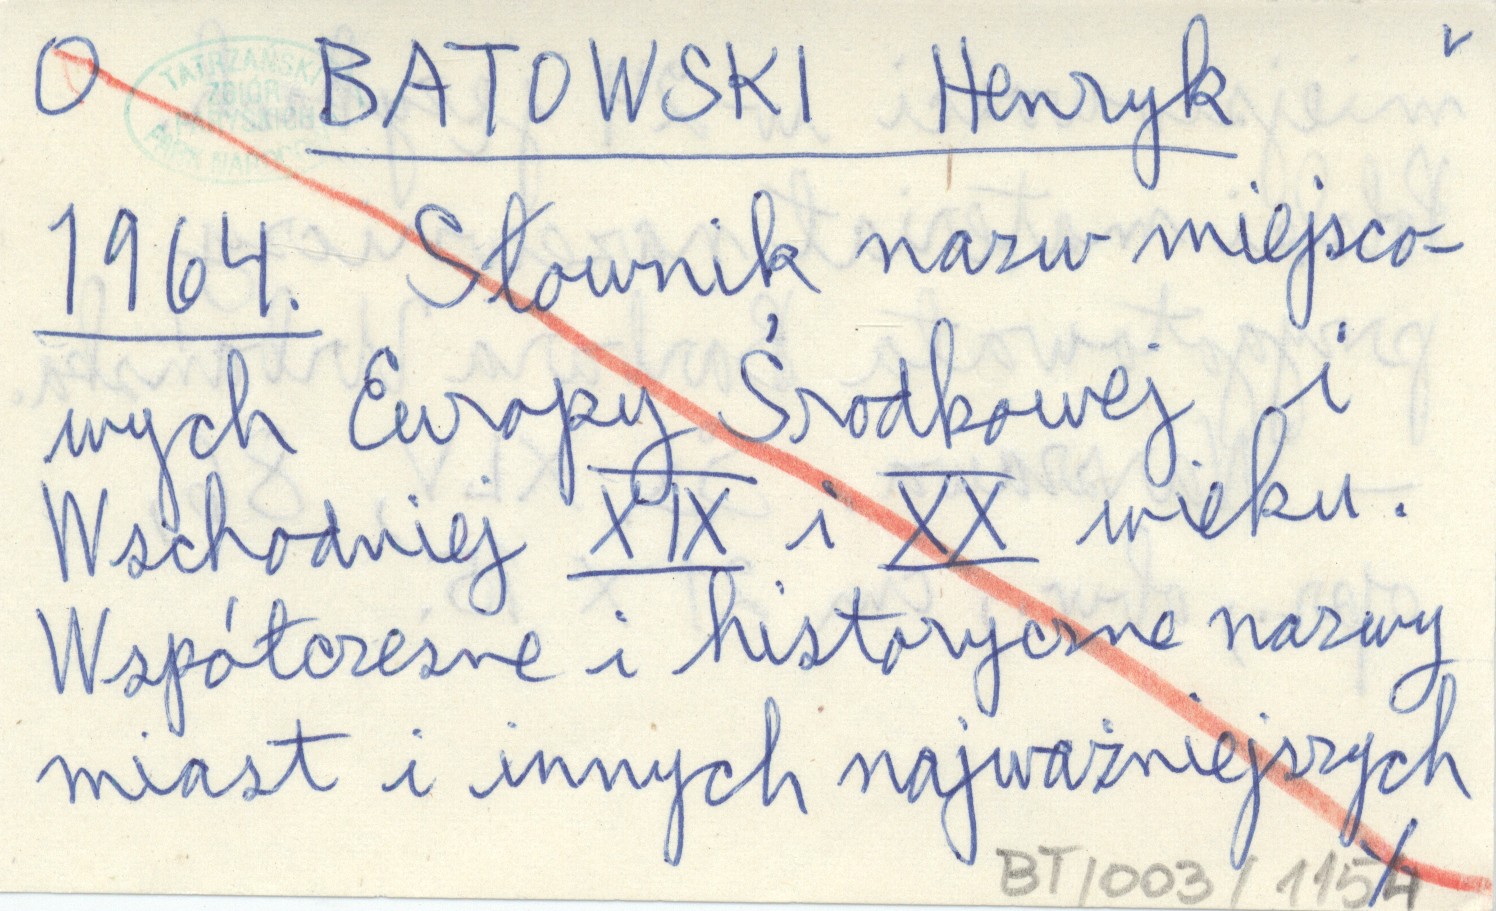 O BATOWSKI Henryk v
TATRZAŃSKI
ZBIÓR
PARK NARODO
1964. Słownik nazw miejsco-
wych Europy Środkowej i
Wschodniej XIX i XX wieku.
Współczesne i historyczne nazwy
miast i innych najważniejszych
/
BT/003/1154